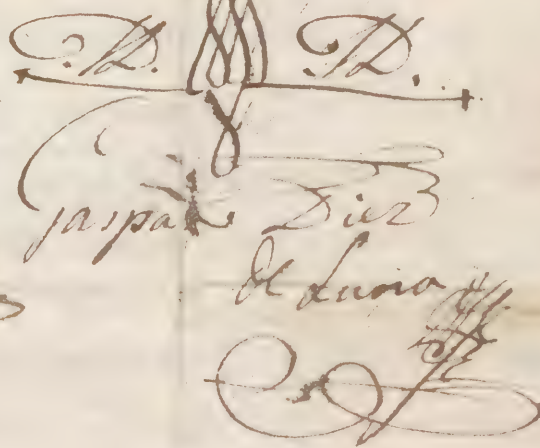 D. D.
Gaspar Diez
de Luna